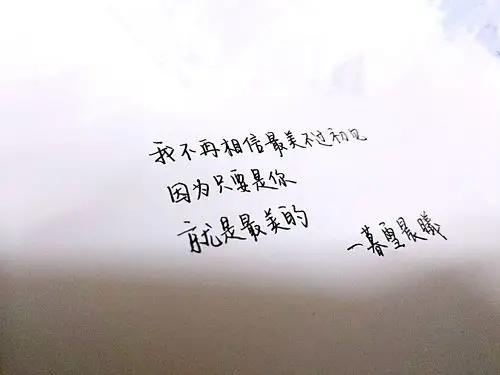 我不再相信最美不过初见
因为只要是你
就是最美的
一暮雪晨曦